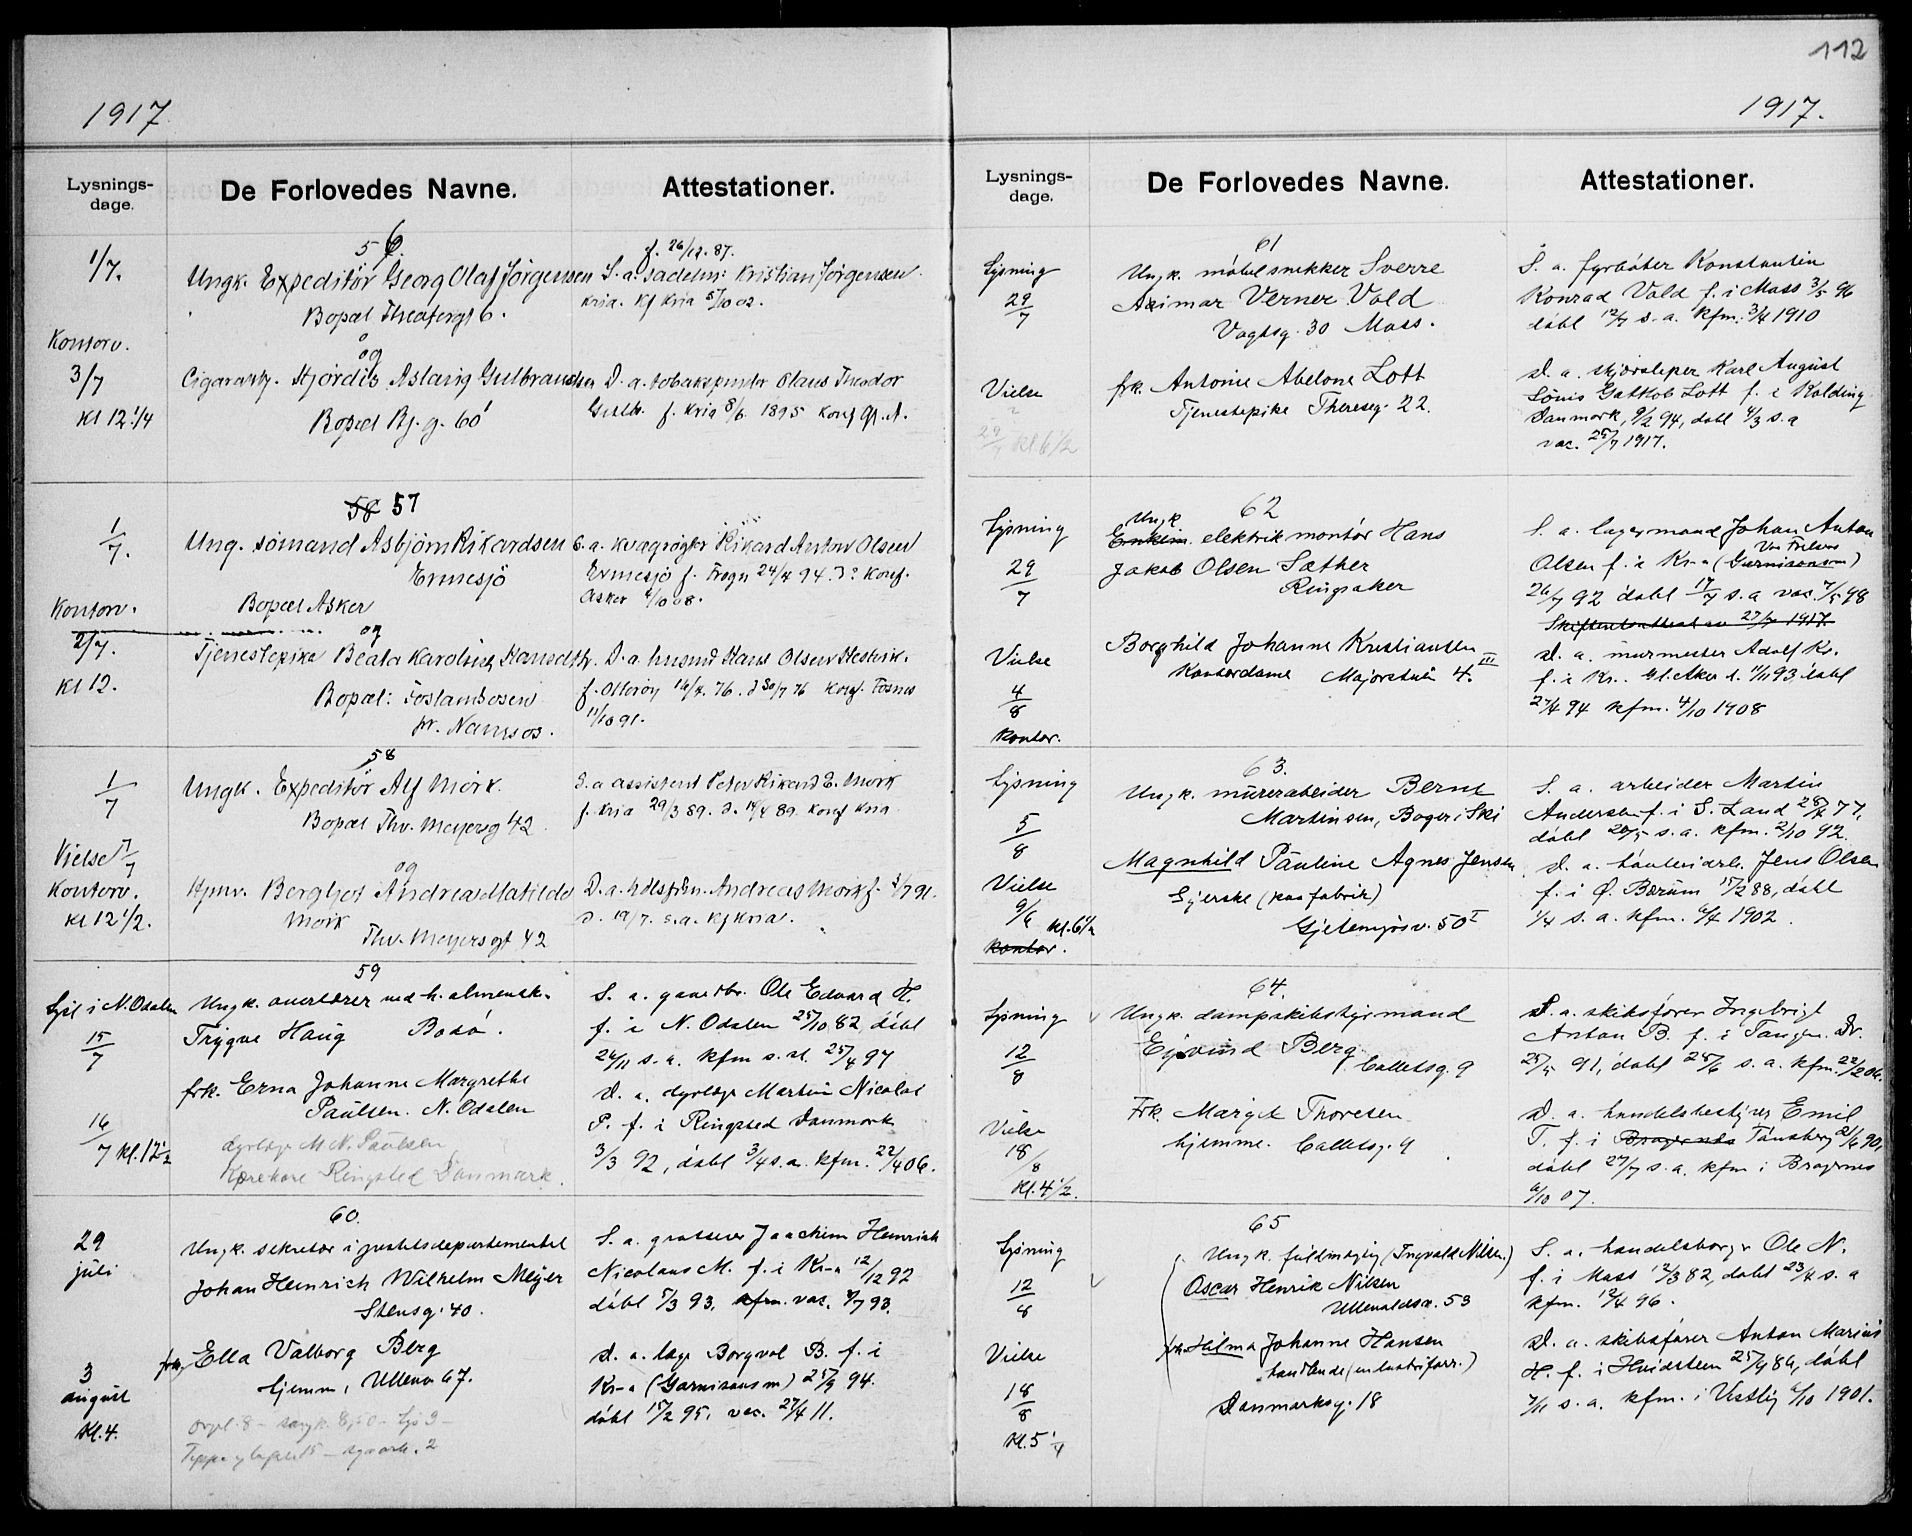 112
1917.
1917.
Lysnings-
dage.
De Forlovedes Navne.
Attestationer.
56
1/7.
Ungk. Expeditör Georg Olaf Jörgensen
Bopæl Theatergt 6.
Kontorv.
3/7
Kl 12 1/4
og
Cigararb. Hjördis Aslaug Gulbrandsen
Bopæl Bj. g. 60
f. 26/12. 87.
S. a. Sadelm: Kristian Jörgensen
Kria. Kf Kria 5/10 02.
D. a. tobakspinder Olaus Theodor
Gulb. f. Kria 8/6. 1895 Konf Gr. A.
58 57
1/7.
Ung. sömand Asbjörn Rikardsen
Ermesjö
Bopæl Asker
Kontorv.
2/7.
Kl 12.
og
Tjenestepike Beata Karoline
Bopæl: Foslandsosen
pr. Namsos.
S. a. Kvægrögter Rikard Anton Olsen
Ermesjö f. Frogn 24/4 94. D? Konf.
Asker 4/10 08.
D. a. husmd Hans Olsen
f. Otteröy 16/7. 76. d 30/7 76 Konf. Fosnes
11/10 91.
58
1/7
Ungk. Expeditör Alf Mörk.
Bopæl Thv. Meyersg 42
Vielse 7/7
Kontorv.
Kl 12 1/2.
og
Hjmv. Bergljot Andrea Matilde
Mörk
Thv. Meyersgt 42
S. a assistent Peter Rikard E. Mörk
f. Kria 29/3 89. d. 14/4 89. Konf Kria
D. a. Andreas Mörk f. 3/7 91.
d. 19/7. s.a. Kf Kria.
59
Lyst i N. Odalen
15/7
Ungk. overlærer ved h. almensk.
Trygve Haug Bodö.
frk. Erna Johanne Margrethe
Paulsen. N. Odalen
16/7 kl. 12 1/2
dyrlæge M N. Paulsen
Ringsted Danmark.
S. a. gaardbr. Ole Edvard H.
f. i N. Odalen 25/10 82, döbt
26/11 s. a. kfm s. st. 25/4 97
D. a. dyrlæge Martin Nicolai
P. f. i Ringsted Danmark
3/3 92, döbt 3/4 s. a. kfm. 22/4 06.
60.
29
juli
Ungk. sekretær i justitsdepartementet
Johan Heinrich Wilhelm Meyer
Stensg. 40.
3
august
Kl. 4.
frk. Ella Valborg Berg
hjemme, Ullevv 67.
S. a. grosserer Joachim Heinrich
Nicolaus M. f. i Kr-a 12/12 92
döbt 5/3 93, kfm. vac. 9/7 93.
D. a. læge Borgvol B. f. i
Kr-a (Garnisons m) 25/9 94.
döbt 15/2 95. vac. 27/4 11.
Lysnings-
dage.
De Forlovedes Navne.
Attestationer.
61
Lysning
29/7
Ungk. möbelsnekker Sverre
Arimar Verner Vold
Vogtsg. 30 Moss.
Vielse
29/7 Kl. 6 1/2
frk. Antonie Abelone Lott
Tjenestepike Theresesg. 22.
S. a. fyrböter Konstantin
Konrad Vold f. i Moss 3/5 96
döbt 12/7 s. a. kfm. 3/4 1910
D. a. skjærsliper Karl August
Louis Gottlob Lott f. i Kolding
Danmark, 9/2 94, döbt 4/3 s. a
vac. 25/7 1917.
62
Lysning
29/7
Ungk.
Enkem. elektrik montör Hans
Jakob Olsen Sæther
Ringsaker
Vielse
4/8
kontor.
Borghild Johanne Kristiansen
Kontordame Majorstuv 4. III
S. a. lagermand Johan Anton
Olsen f. i Kr-a (Garnisonsm)
Vor Frelsers
26/7 92 döbt 17/7 s. a vac. 7/5 98
Skifteattest av 27/7 1917
D. a. murmester Adolf Kr.
f. i Kr.. Gl. Aker d. 11/11 93, döbt
27/4 94 kfm. 4/10 1908
63.
Lysning
5/8
Ungk. murerarbeider Bernt
Martinsen, Boger i Ski
Vielse
9/6 Kl. 6 1/2
kontor.
Magnhild Pauline Agnes Jensen
Gjetemyrsv. 50 I
S. a. arbeider Martin
Andersen f. i S. Land 28/7 77,
döbt 20/5 s. a. kfm. 2/10 92.
D. a. Jens Olsen
f. i Ø. Bærum 15/2 88, döbt
1/4 s. a. kfm. 6/4 1902.
64.
Lysning
12/8
Ungk. dampskibsstyrmand
Eyvind Berg
Colletsg. 9
Vielse
18/8
Kl. 4 1/2.
Frk. Margit Thoresen
hjemme. Colletsg. 9
S. a. skibsförer Ingebrigt
Anton B. f. i Tangen. Dr.
25/5 91, döbt 25/6 s. a. kfm. 22/2 06.
D. a. handelsbestyrer Emil
T. f. i Bragernes Tönsberg 21/6 90,
döbt 27/7 s. a. kfm i Bragernes
6/10 07.
65
Lysning
12/8
Ungk. fuldmægtig (Ingvald Nilsen.)
Oscar Henrik Nilsen
Ullevoldsv. 53
Vielse
18/8
Kl. 5 1/4
frk. Hilma Johanne Hansen
handlende
Danmarksg. 18
S. a. handelsborger Ole N.
f. i Moss 12/3 82, döbt 23/4 s. a
kfm. 12/4 96.
D. a. skibsförer Anton Marius
H. f. i Hvidsten 25/9 86, döbt
7/11 s. a. kfm. i Vestby 6/10 1901.